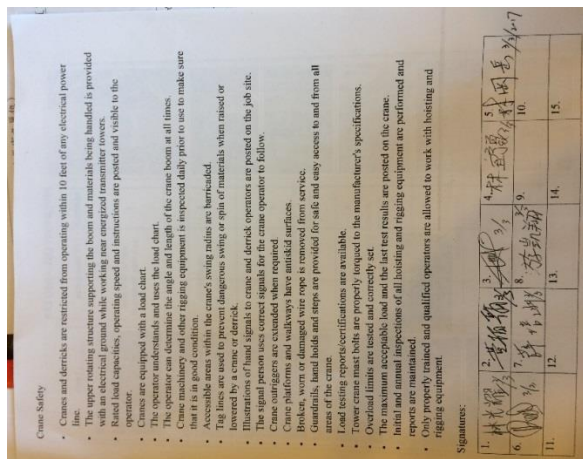 Crane Safety
• Cranes and derricks are restricted from operating within 10 feet of any electrical power
line.
• The upper rotating structure supporting the boom and materials being handled is provided
with an electrical ground while working near energized transmitter towers.
• Rated load capacities, operating speed and instructions are posted and visible to the
operator.
• Cranes are equipped with a load chart.
• The operator understands and uses the load chart.
• The operator can determine the angle and length of the crane boom at all times.
• Crane machinery and other rigging equipment is inspected daily prior to use to make sure
that it is in good condition.
• Accessible areas within the crane's swing radius are barricaded.
• Tag lines are used to prevent dangerous swing or spin of materials when raised or
lowered by a crane or derrick.
• Illustrations of hand signals to crane and derrick operators are posted on the job site.
• The signal person uses correct signals for the crane operator to follow.
• Crane outriggers are extended when required.
• Crane platforms and walkways have antiskid surfaces.
• Broken, worn or damaged wire rope is removed from service.
• Guardrails, hand holds and steps are provided for safe and easy access to and from all
areas of the crane.
• Load testing reports/certifications are available.
• Tower crane mast bolts are properly torqued to the manufacturer's specifications.
• Overload limits are tested and correctly set.
• The maximum acceptable load and the last test results are posted on the crane.
• Initial and annual inspections of all hoisting and rigging equipment are performed and
reports are maintained.
• Only properly trained and qualified operators are allowed to work with hoisting and
rigging equipment.
Signatures:
1. 2. 3. 3/1 4. 林 5.
6. 3/1 7. 8. 游凱翔 9. 10.
11. 12. 13. 14. 15.